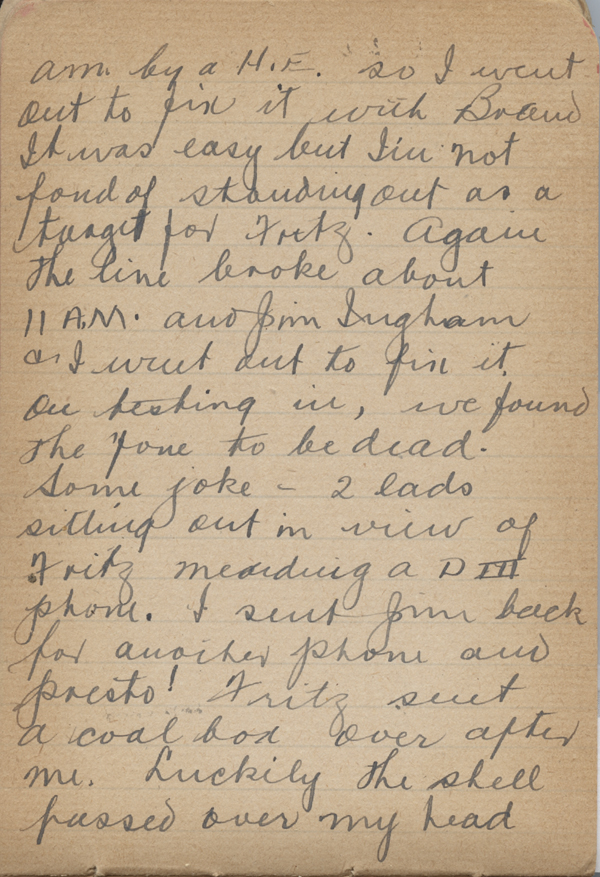 am. by a H.E. so I went
out to fix it with Brand
It was easy but I'm not
fond of standing out as a
target for Fritz. Again
the line broke about
11 A.M. and Jim Ingham
& I went out to fix it.
On testing in, we found
the 'fone to be dead.
Some joke - 2 lads
sitting out in view of
Fritz mending a D III
phone. I sent Jim back
for another phone and
presto! Fritz sent
a coal box over after
me. Luckily the shell
passed over my head